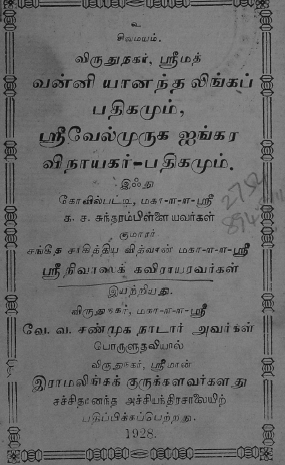 உ
சிவமயம்.
விருதுநகர், ஸ்ரீமத்
வன்னி யானந்தலிங்கப்
பதிகமும்,
ஸ்ரீவேல்முருக ஐங்கர
விநாயகர்-பதிகமும்.
இஃது
கோவில்பட்டி, மகா-ள-ள-ஸ்ரீ
க. ச. சுந்தரம்பிள்ளையவர்கள்
குமாரர்
சங்கீத சாகித்திய வித்வான் மகா-ள-ள-ஸ்ரீ
ஸ்ரீநிவாஸக் கவிராயரவர்கள்
இயற்றியது.
விருதுநகர், மகா-ள-ள-ஸ்ரீ
வே. வ. சண்முக நாடார் அவர்கள்
பொருளுதவியால்
விருதுநகர், ஸ்ரீமான்
இராமலிங்கக் குருக்களவர்களது
சச்சிதானந்த அச்சியந்திரசாலையிற்
பதிப்பிக்கப்பெற்றது.
1928.